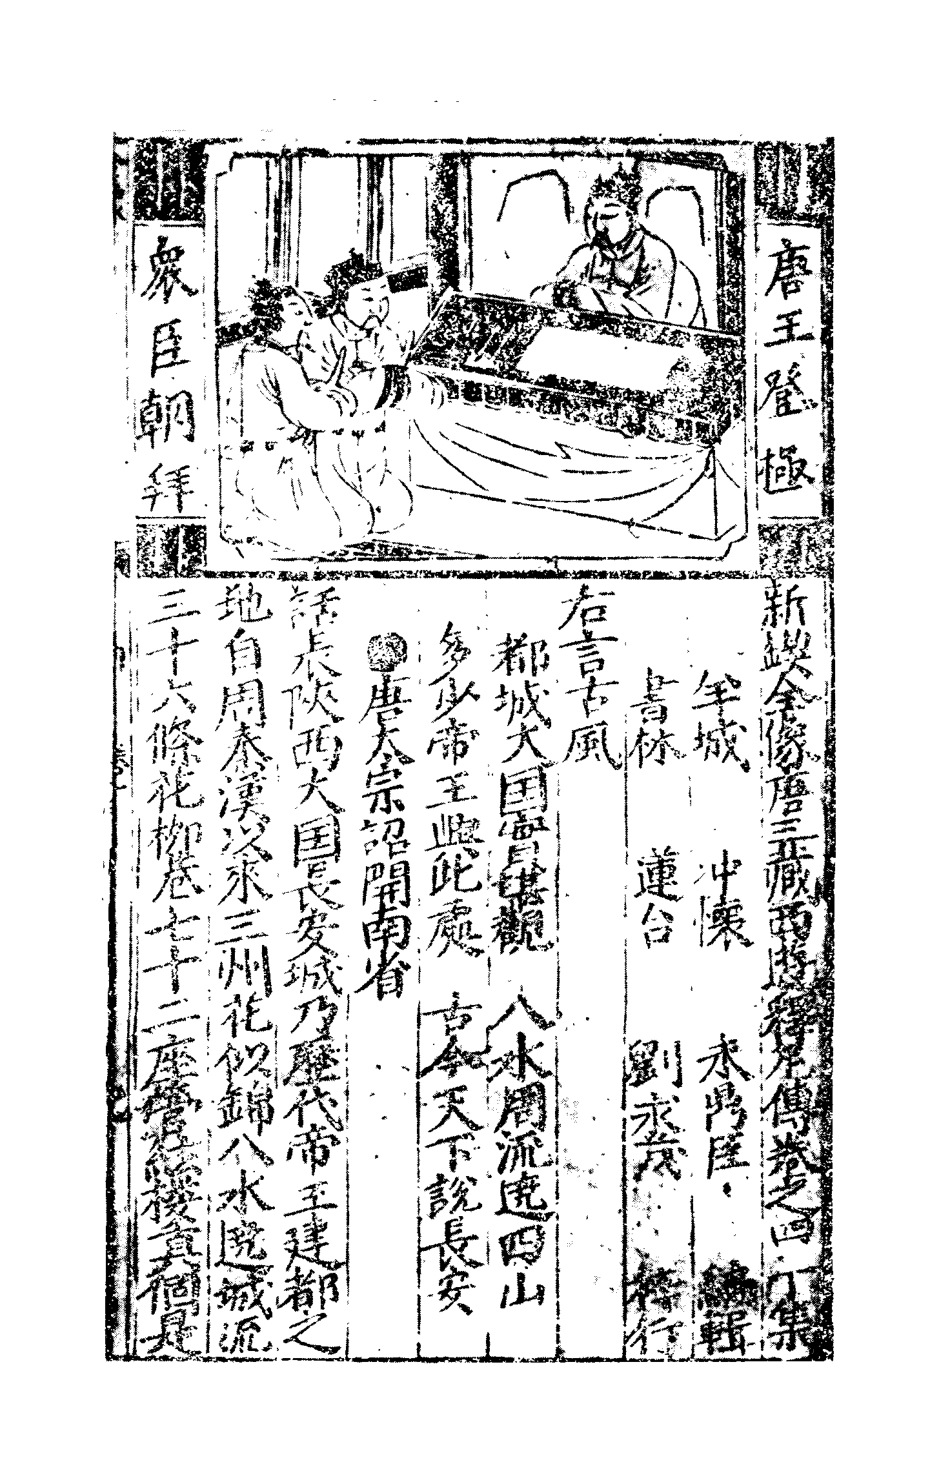 唐王登極
衆臣朝拜
新鍥全像唐三藏西遊釋尼傳卷之四 丁集
羊城 冲懷 朱鼎臣 編輯
書林 蓮台 劉永茂 梓行
右言古風
都城大国實堪觀 八水周流遶四山
多少帝王興此處 古今天下說長安
唐太宗詔開南省
話表陝西大国長安城乃歷代帝王建都之
地自周秦漢以來三州花似錦八水遶城流
三十六條花柳巷七十二座管絃樓真個是